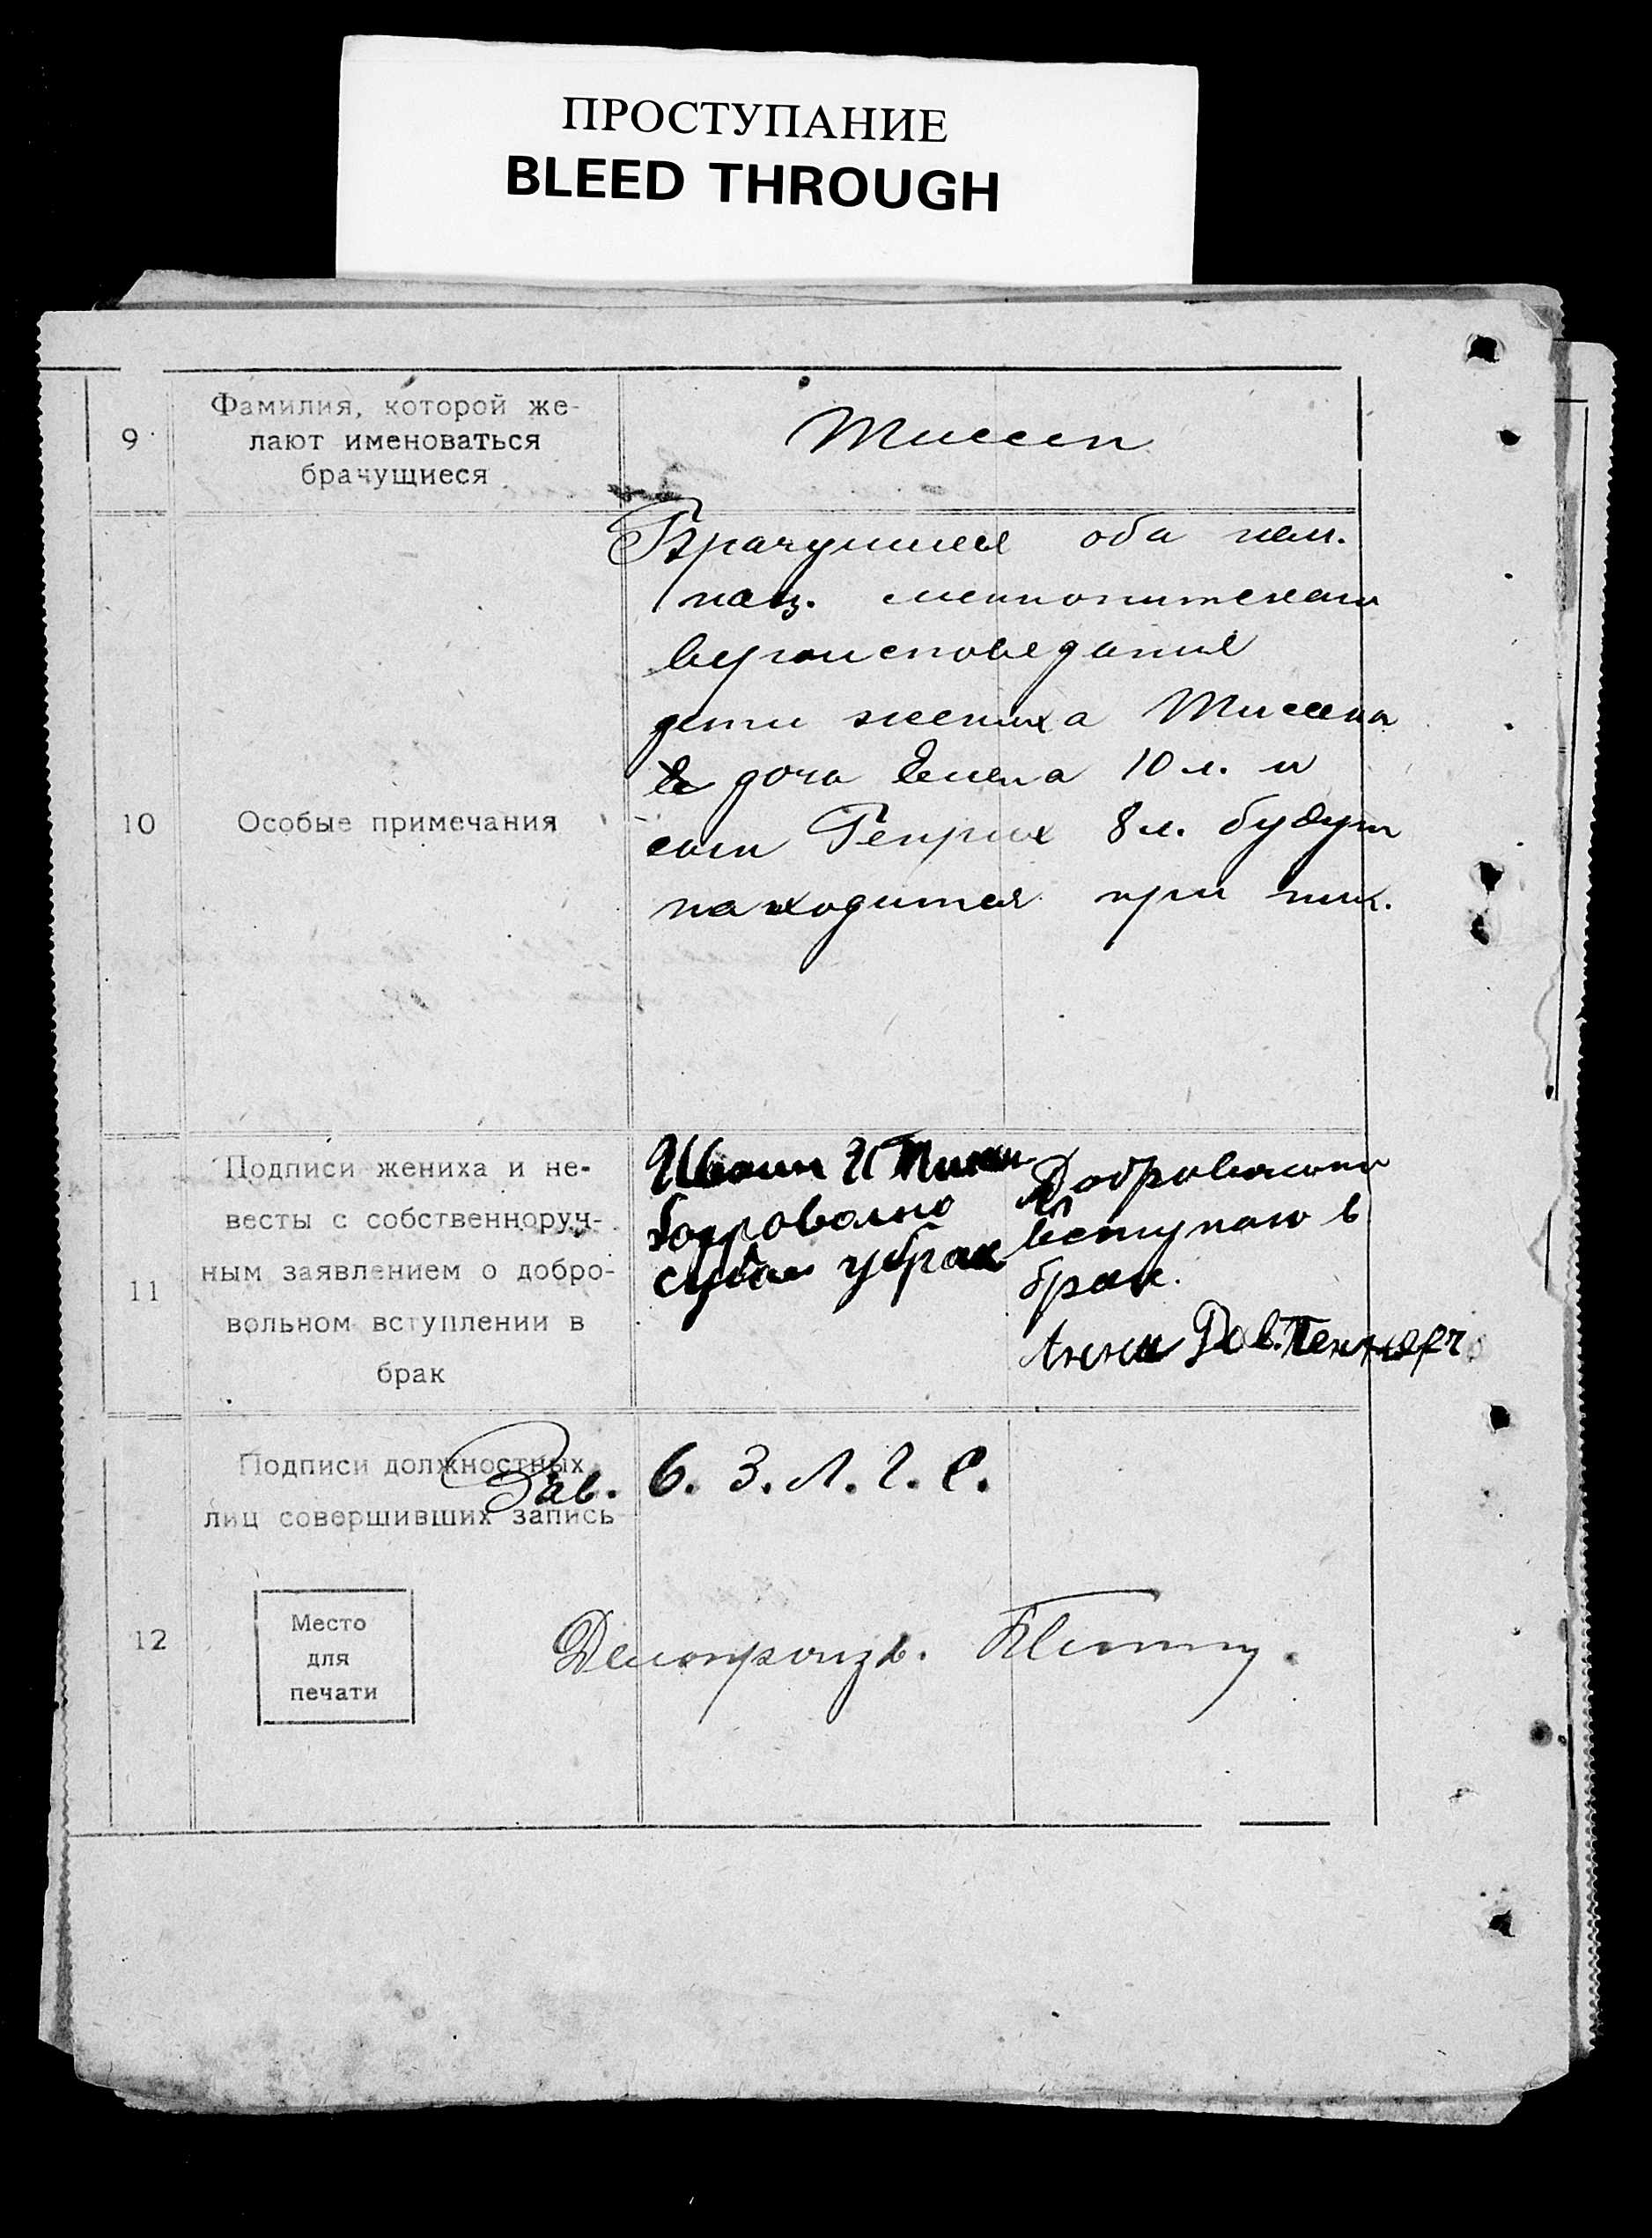 ПРОСТУПАНИЕ
BLEED THROUGH
9
Фамилия, которой же-
лают именоваться
брачущиеся
Тиссен
10
Особые примечания
Брачущиеся оба нем.
нац. меннонитского
вероисповедания
дети жениха Тиссена
доча Елена 10 л. и
сын Генрих 8 л. будут
находится при них.
11
Подписи жениха и не-
весты с собственноруч-
ным заявлением о добро-
вольном вступлении в
брак
Иван И
брак
Добровольно
вступаю в
брак.
Анна Дав. Пеннер
12
Подписи должностных
лиц совершивших запись
Зав.
Место
для
печати
Делопроизв.